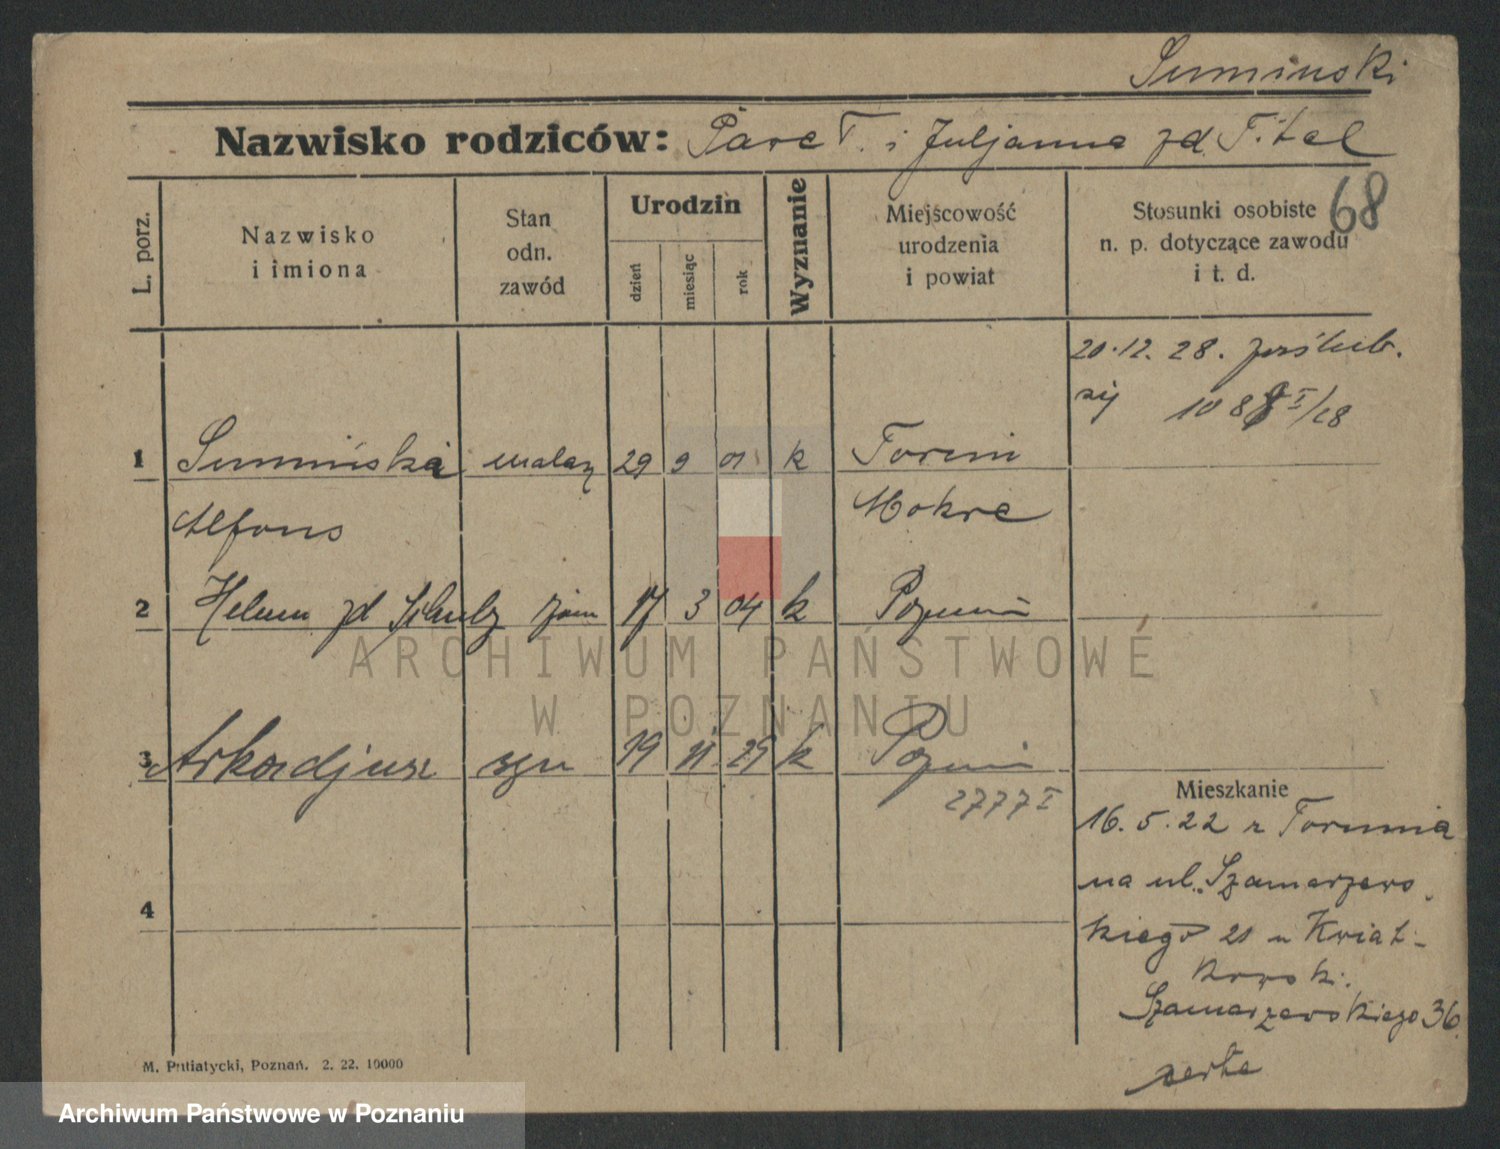 Sumiński
Nazwisko rodziców: Paweł i Juljanna zd. Fital
68
L. porz.
Nazwisko
i imiona
Stan
odn.
zawód
Urodzin
dzień
miesiąc
rok
Wyznanie
Miejscowość
urodzenia
i powiat
Stosunki osobiste
n. p. dotyczące zawodu
i t. d.
20.12.28. poślub.
się 10 I/28
1 Sumiński malarz 29 9 01 k Toruń
Alfons Mokre
2 Helena zd Schulz żona 17 3 04 k Poznań
3 Arkadjusz syn 19 11 29 k Poznań
2777 I
Mieszkanie
16.5.22 z Torunia
na ul. Szamarzews
kiego 21 u Kwiat-
kowski.
Szamarzewskiego 36
4
M. Putiatycki, Poznań. 2. 22. 10000
ARCHIWUM PAŃSTWOWE
W POZNANIU
Archiwum Państwowe w Poznaniu